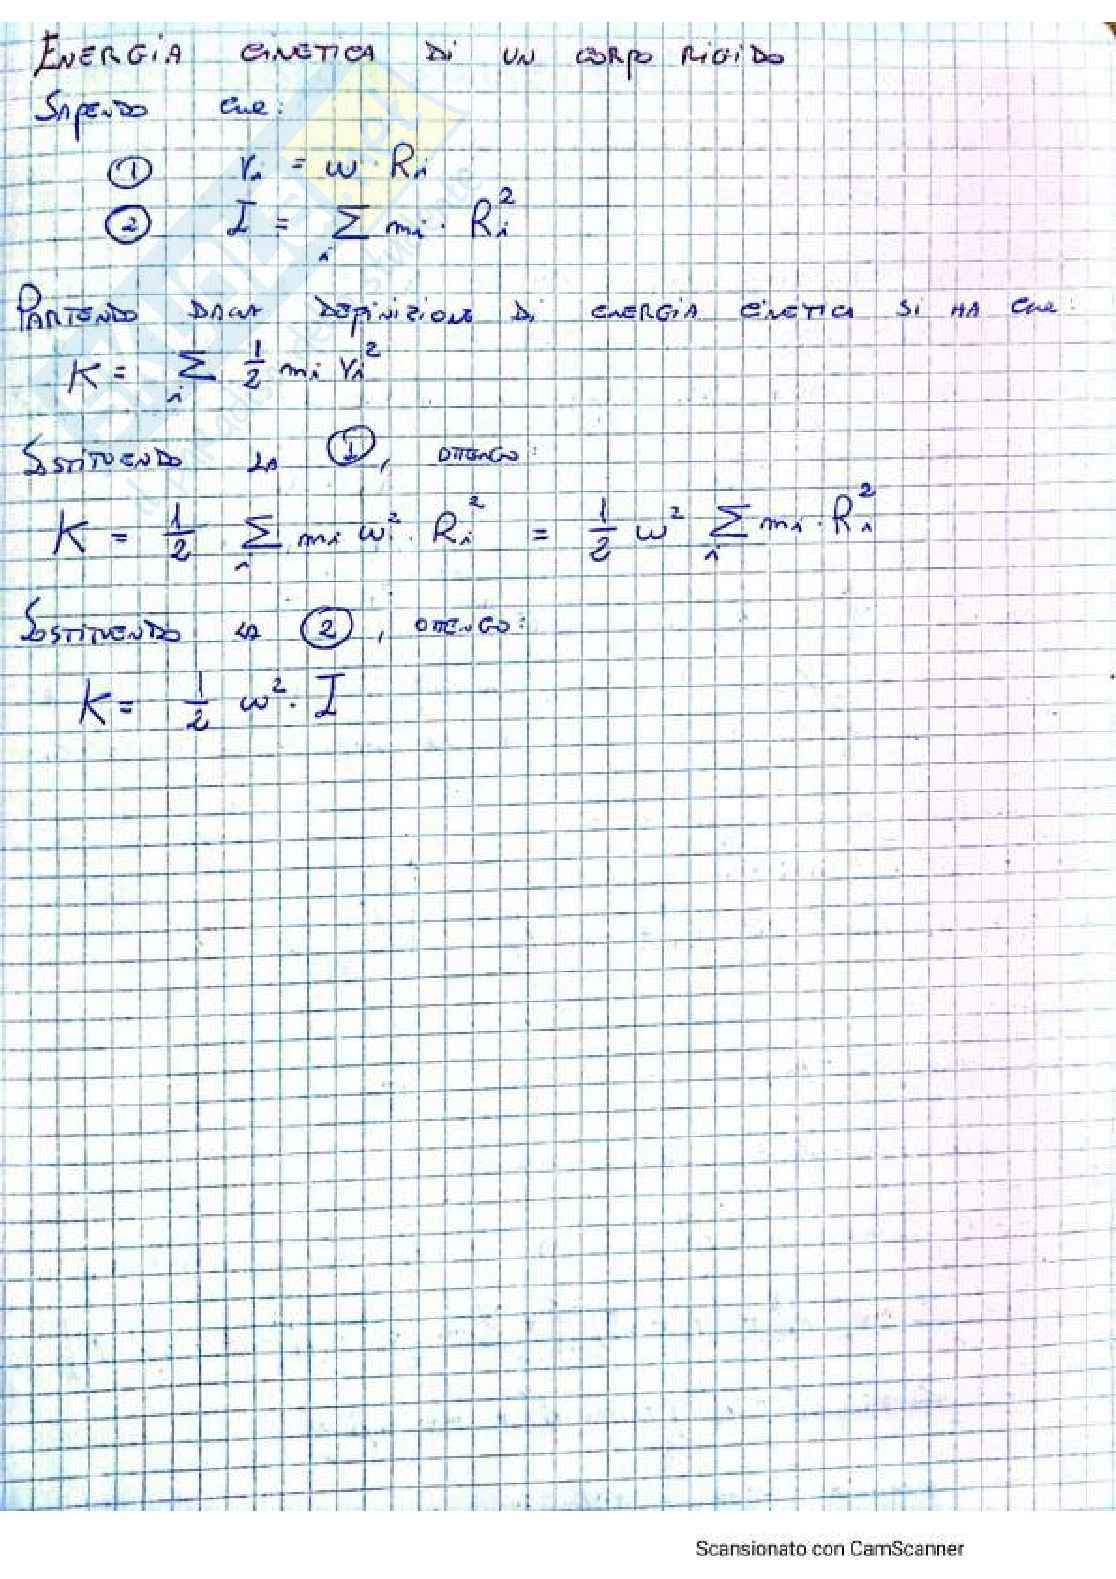 ENERGIA CINETICA DI UN CORPO RIGIDO
SAPENDO CHE:
① vi = ω · Ri
② I = Σi mi · Ri²
PARTENDO DALLA DEFINIZIONE DI ENERGIA CINETICA SI HA CHE:
K = Σi 1/2 mi vi²
SOSTITUENDO LA ①, OTTENGO:
K = 1/2 Σi mi ω² · Ri² = 1/2 ω² Σi mi · Ri²
SOSTITUENDO LA ②, OTTENGO:
K = 1/2 ω² · I
Scansionato con CamScanner